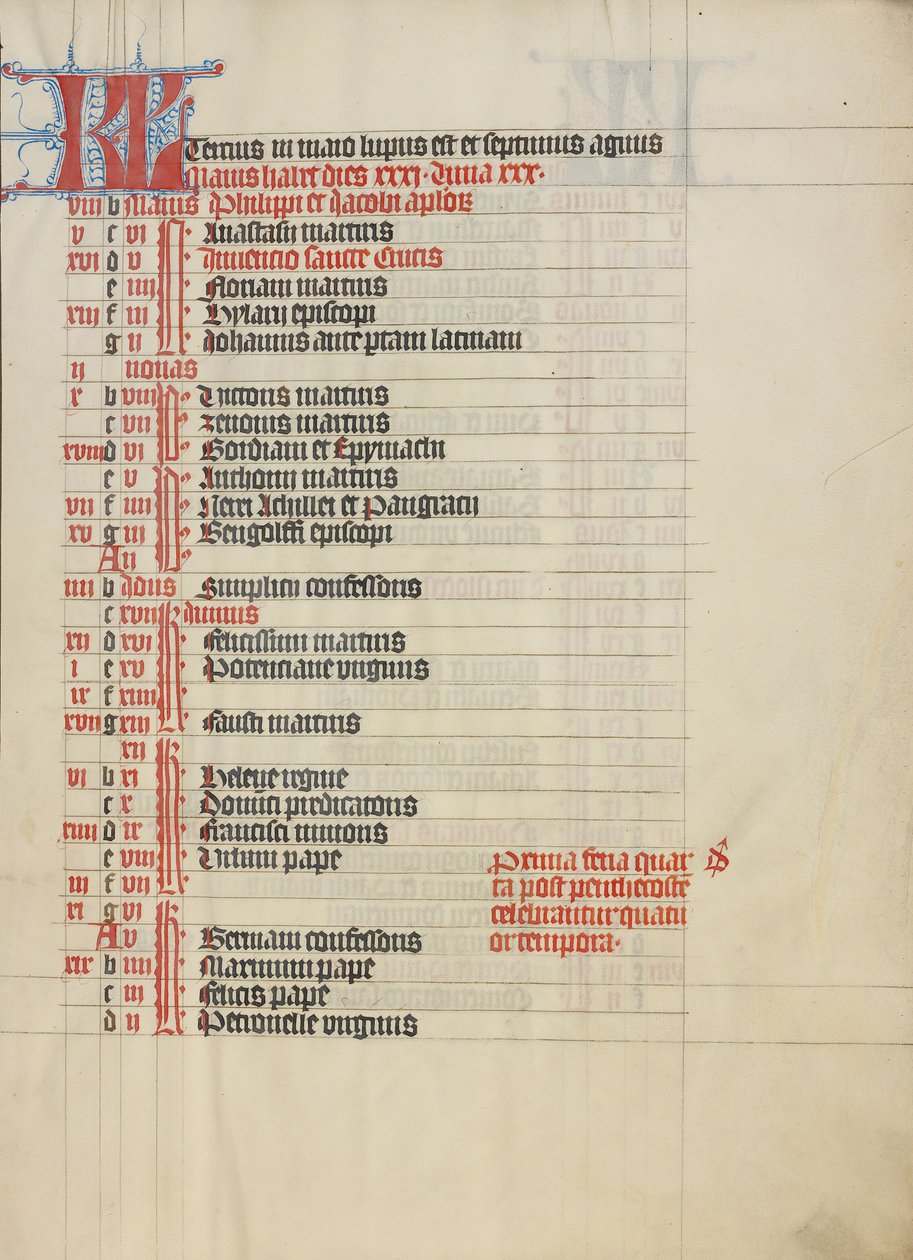 KL Tercius in maio lupus est et septimus aguus
Maius habet dies xxxi· Luna xxx·
viii b Maius Philippi et Jacobi aplor
v c vi N Anastasij martiris
xvi d v Inuencio sancte Crucis
e iiii Floriani martiris
xiii f iii Hylarij episcopi
ii g ii Johannis ante portam latinam
ij nonas
x b viii Id Victoris martiris
c vii Zenonis martiris
xviii d vi Gordiani et Epymachi
e v Anthonij martiris
vii f iiii Nerei Achillei et Pangracij
xv g iii Gengolffi episcopi
A ij
iiii b Idus Simplicij confessoris
c xvii kl Junius
xii d xvi Felicissimi martiris
i e xv Potenciane virginis
ix f xiiii
xvii g xiii Fausti martiris
xii kl
vi b xi Helene virginis
c x Dominici predicatoris
xiiii d ix Francisci minoris
e viii Urbani pape
iii f vii
xi g vi kl
A v Germani confessoris
xix b iiii Maximini pape
c iii Felicis pape
d ii Petronelle virginis
Prima feria quar
ta post penthecoste
celebrantur quatu
or tempora·